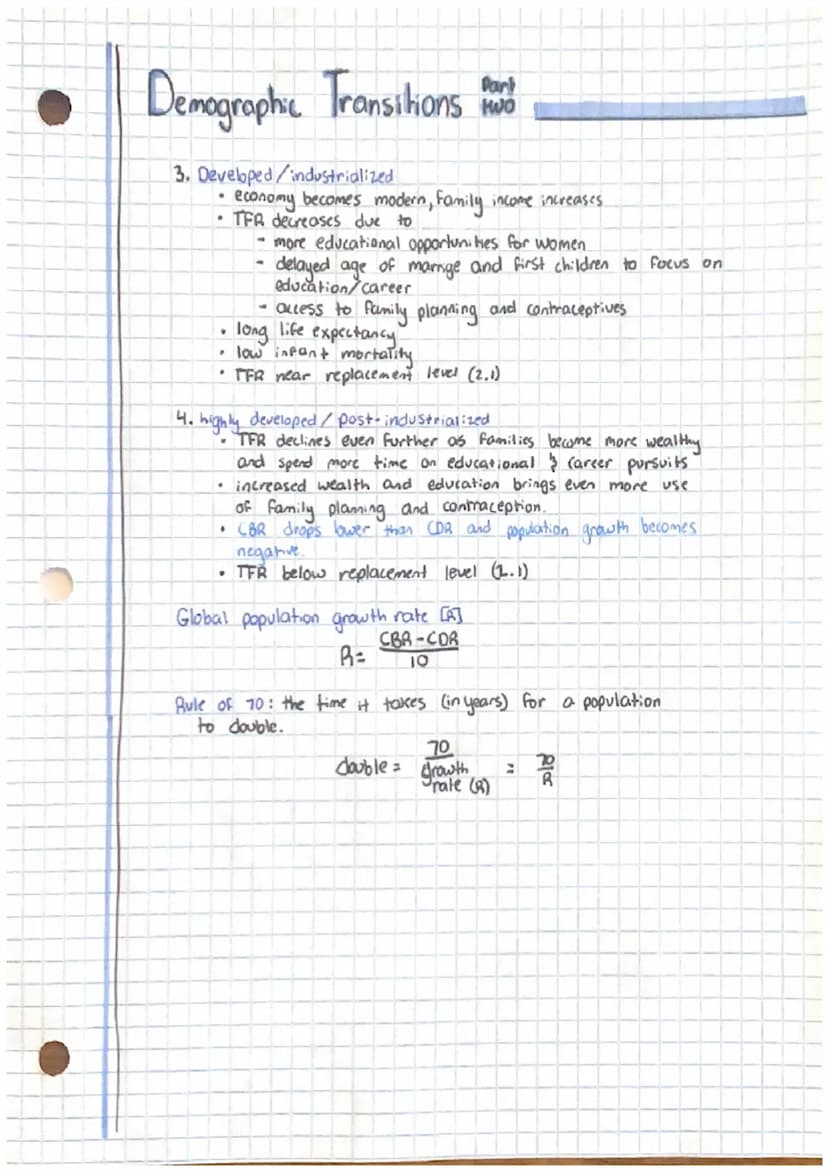 Demographic Transitions Part two
3. Developed/industrialized
• economy becomes modern, family income increases
• TFR decreases due to
- more educational opportunities for women
- delayed age of marrige and first children to focus on
education/career
- access to family planning and contraceptives
• long life expectancy
• low infant mortality
• TFR near replacement level (2.1)
4. highly developed / post-industrialized
• TFR declines even further as families become more wealthy
and spend more time on educational & career pursuits
• increased wealth and education brings even more use
of family planning and contraception.
• CBR drops lower than CDR and population growth becomes
negative.
• TFR below replacement level (2.1)
Global population growth rate [R]
R = CBR - CDR
10
Rule of 70: the time it takes (in years) for a population
to double.
double = 70 / growth rate (R) = 70 / R